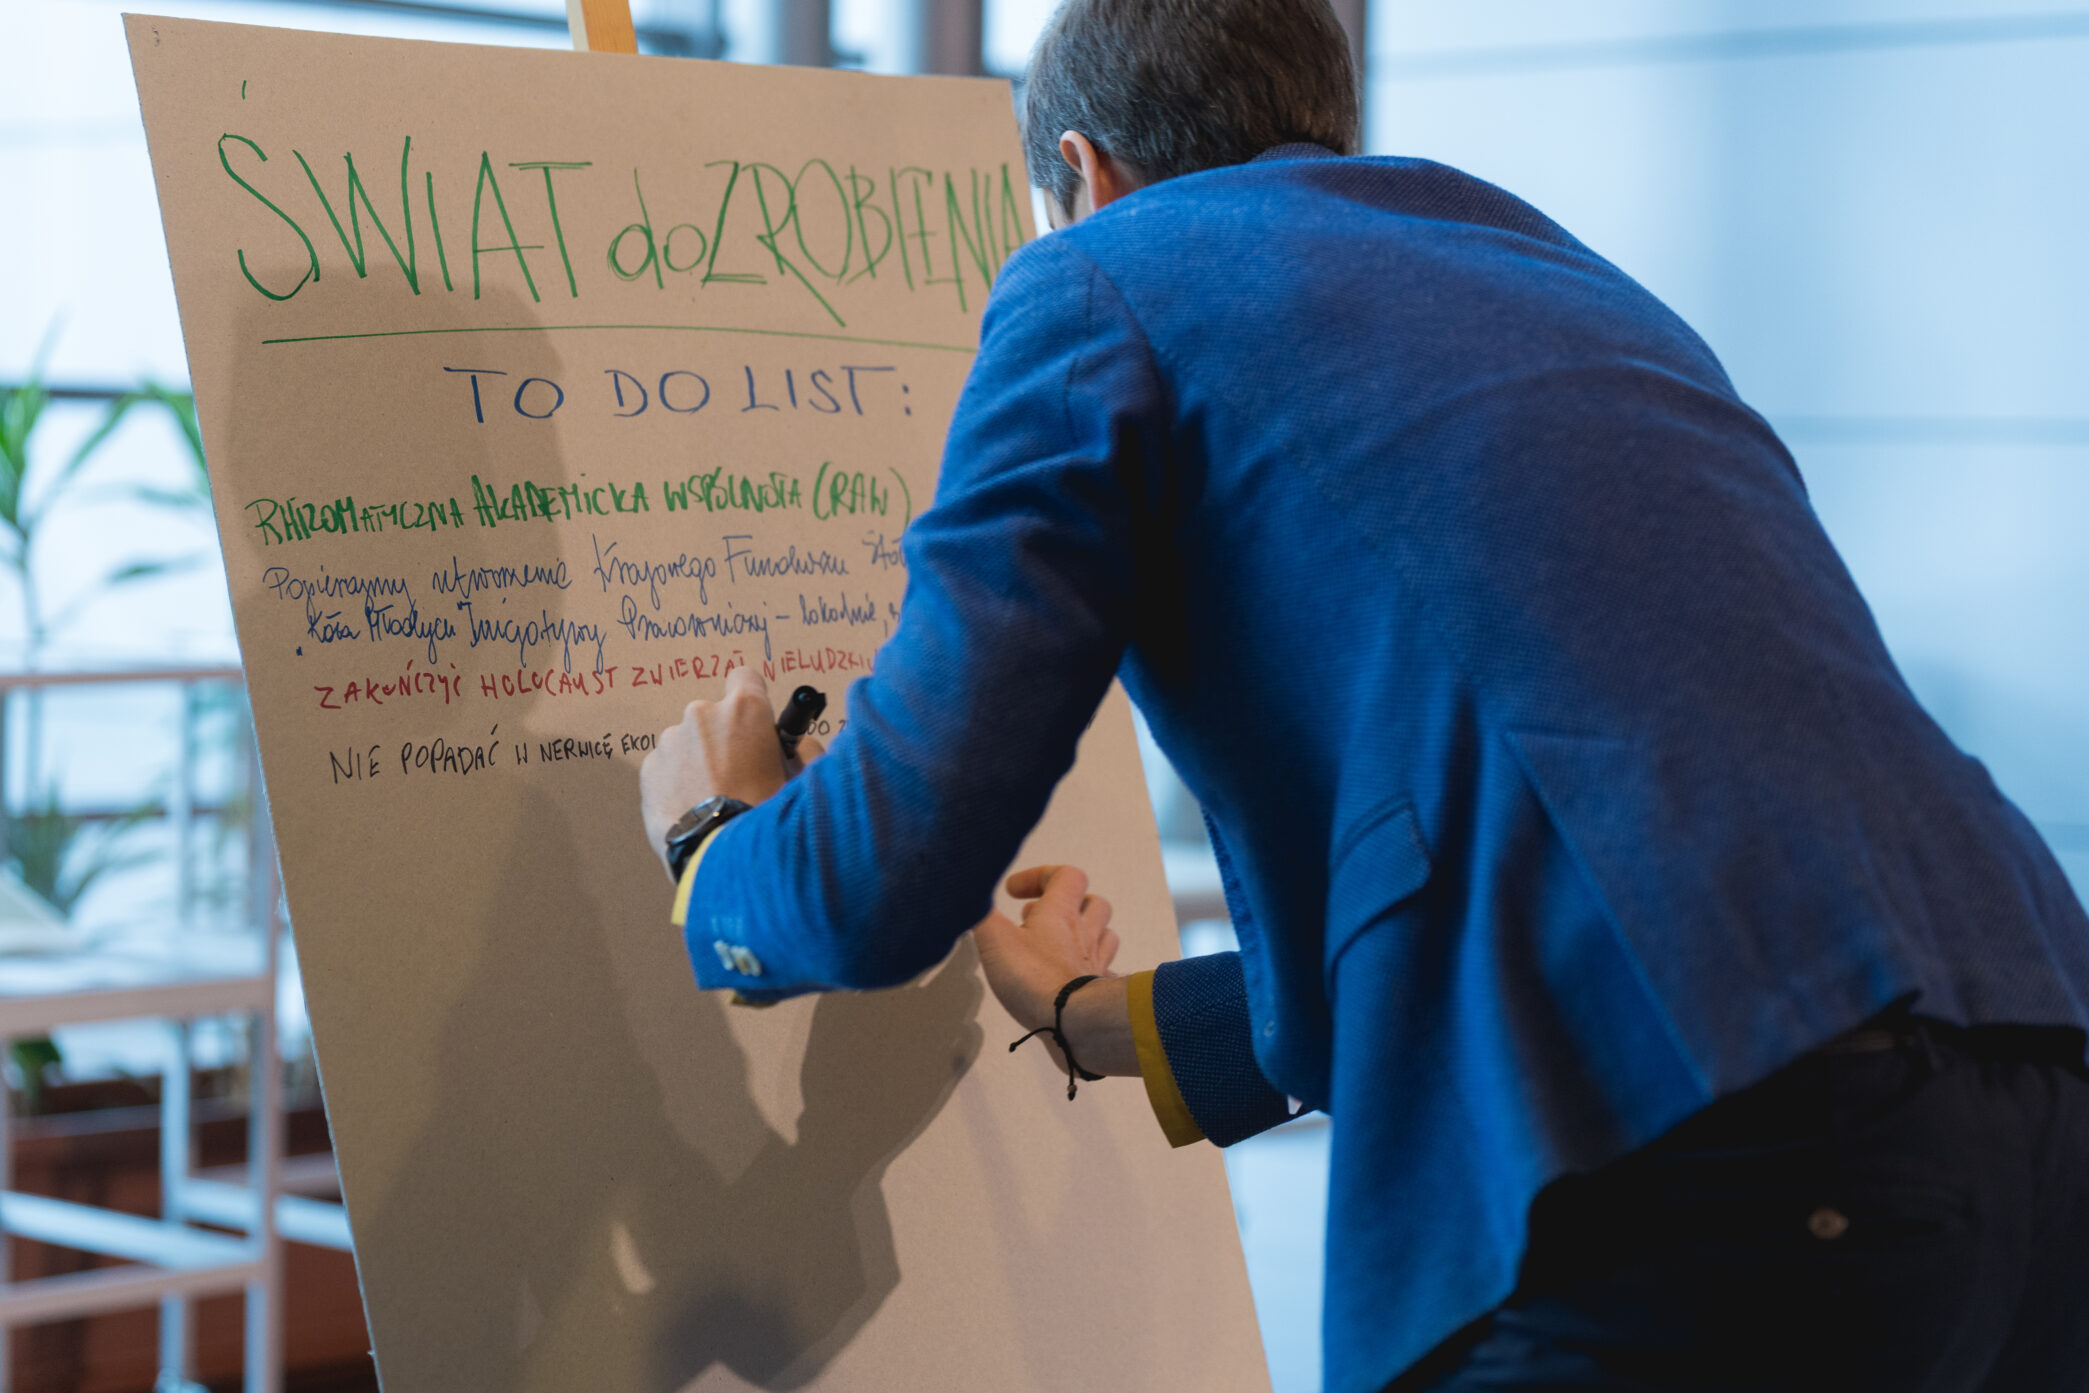 ŚWIAT do ZROBIENIA
TO DO LIST:
RHIZOMATYCZNA AKADEMICKA WSPÓLNOTA (RAW)
Popierajmy utworzenie Krajowego Funduszu
Koła Młodych Inicjatywy Pracowniczej - lokalnie,
ZAKOŃCZYĆ HOLOCAUST ZWIERZĄT NIELUDZKICH
NIE POPADAĆ W NERWICĘ